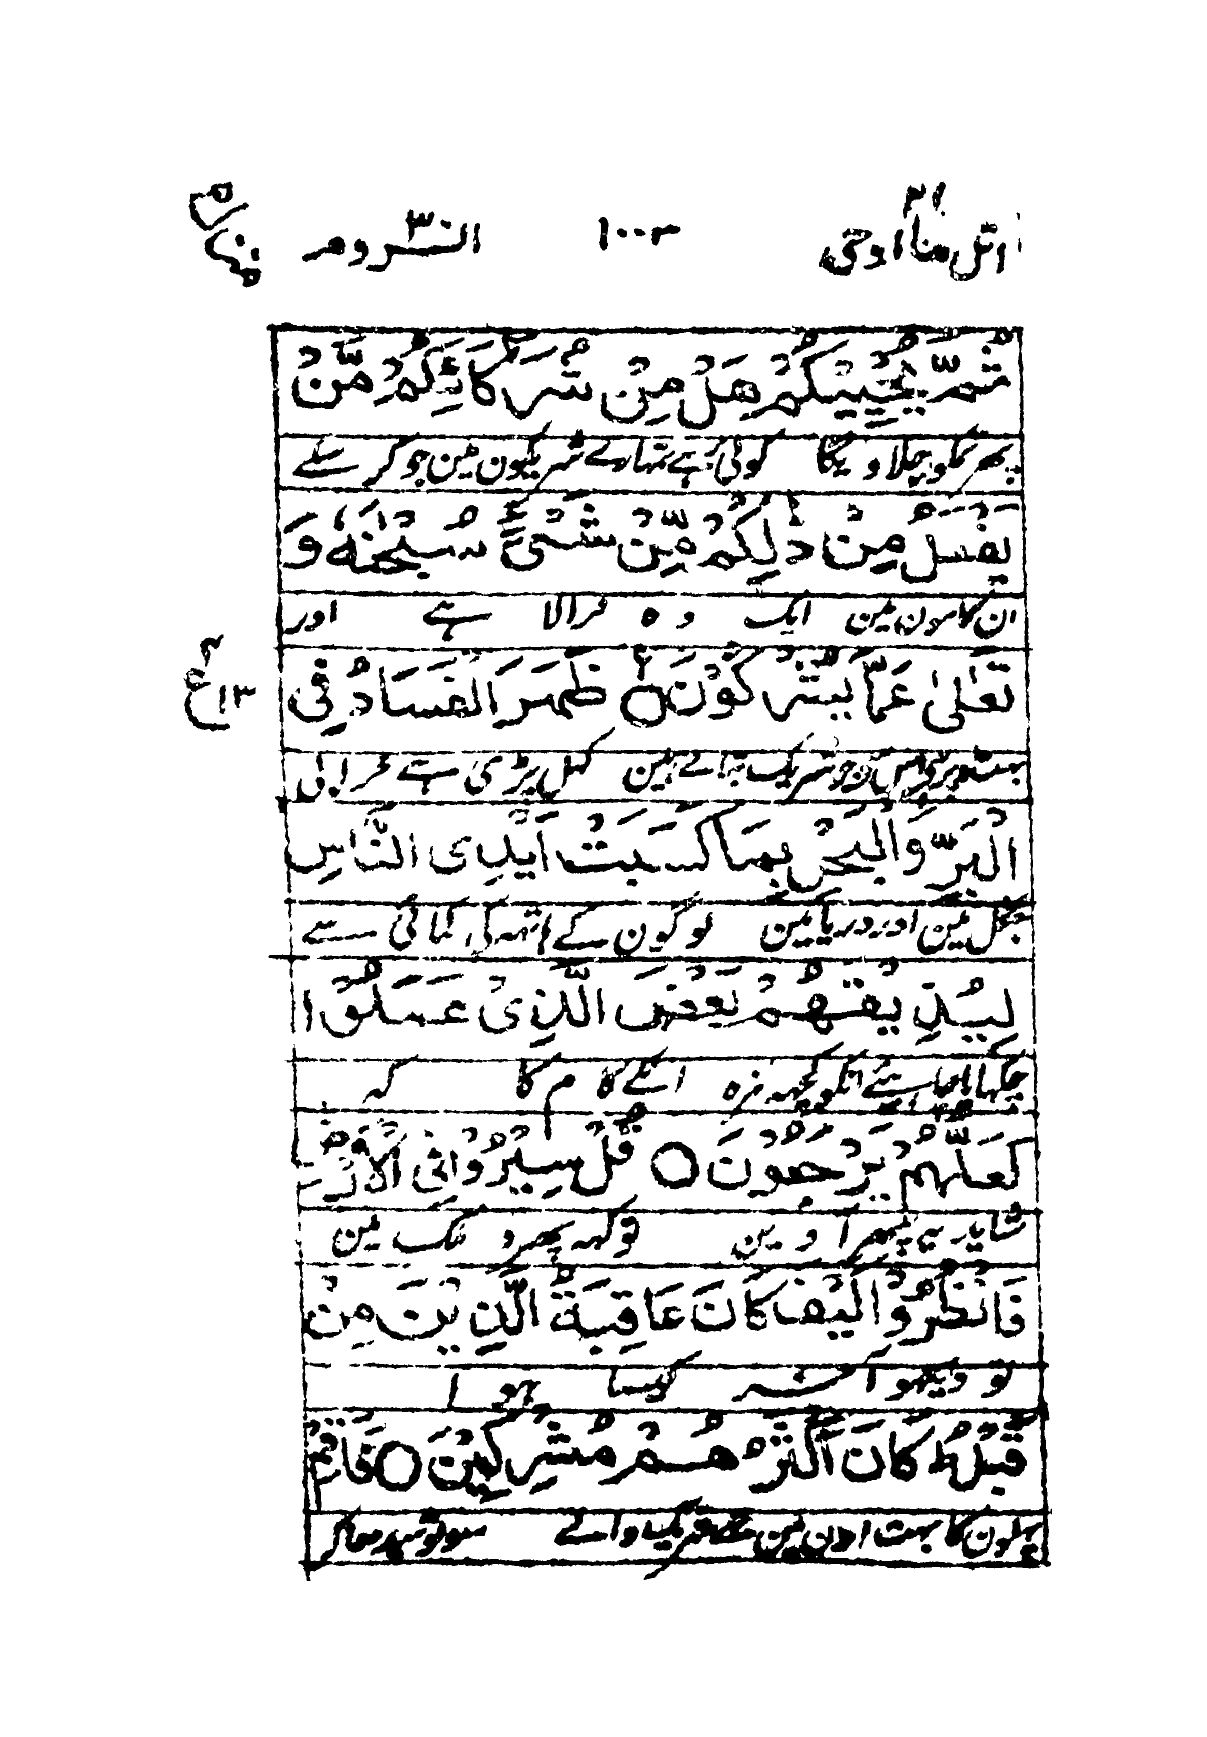 اتل ما اوحی ۲۱ ۱۰۰۳ الروم ۳۰
ثُمَّ يُحْيِيكُمْ هَلْ مِنْ شُرَكَائِكُمْ مَّنْ
پھر تمکو جلاویگا کوئی ہے تمہارے شریکون مین جو کر سکے
يَفْعَلُ مِنْ ذٰلِكُمْ مِّنْ شَيْءٍ سُبْحٰنَهٗ وَ
ان کامون مین ایک وہ نرالا ہے اور
تَعٰلٰى عَمَّا يُشْرِكُوْنَ ○ ظَهَرَ الْفَسَادُ فِي
ع ۴ ۱۳
بہت اوپر ہی اس سے جو شریک بتاتے ہین کھل پڑی ہے خرابی
الْبَرِّ وَالْبَحْرِ بِمَا كَسَبَتْ اَيْدِى النَّاسِ
جنگل مین اور دریا مین لوگون کے ہاتھہ کی کمائی سے
لِيُذِيْقَهُمْ بَعْضَ الَّذِيْ عَمِلُوْا
چکھایا چاہئے انکو کچھہ مزہ انکے کام کا کہ
لَعَلَّهُمْ يَرْجِعُوْنَ ○ قُلْ سِيْرُوْا فِى الْاَرْضِ
شاید یہ پھر آوین تو کہہ پھرو ملک مین
فَانْظُرُوْا كَيْفَ كَانَ عَاقِبَةُ الَّذِيْنَ مِنْ
تو دیکھو آخر کیسا ہوا
قَبْلُ ط كَانَ اَكْثَرُهُمْ مُّشْرِكِيْنَ ○ فَاَقِمْ
پہلون کا بہت اون مین تھے شریک والے سو تو سیدھا کر